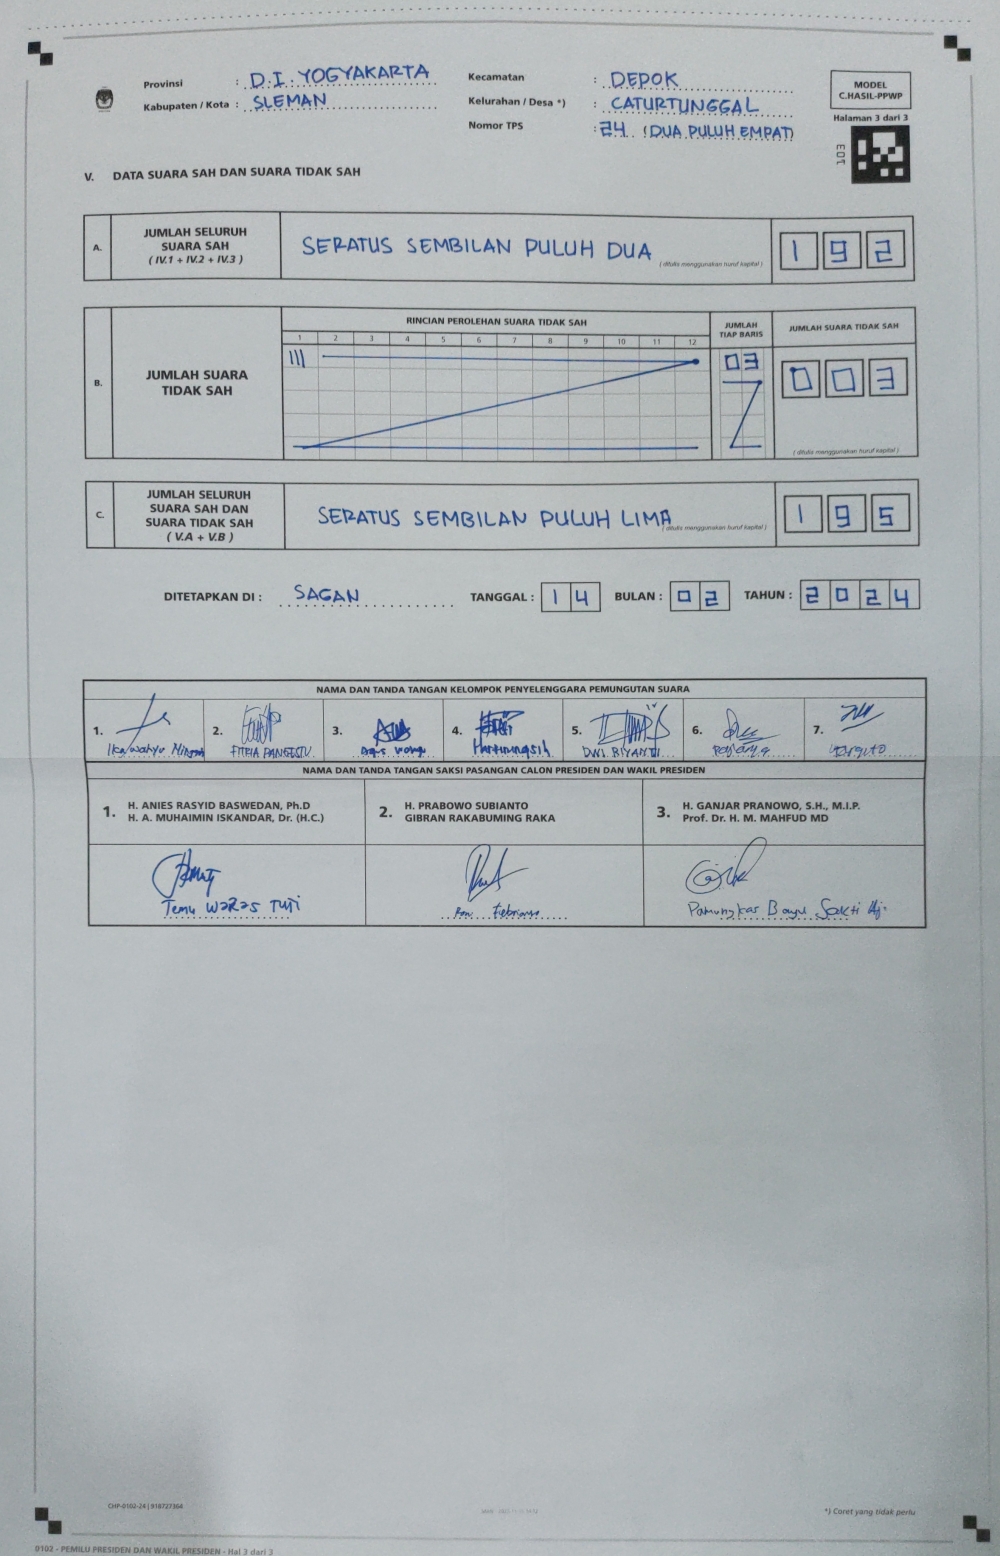 Provinsi : D.I. YOGYAKARTA
Kabupaten / Kota : SLEMAN
Kecamatan : DEPOK
Kelurahan / Desa *) : CATURTUNGGAL
Nomor TPS : 24 (DUA PULUH EMPAT)
MODEL
C.HASIL-PPWP
Halaman 3 dari 3
103
V. DATA SUARA SAH DAN SUARA TIDAK SAH
A. JUMLAH SELURUH
SUARA SAH
( IV.1 + IV.2 + IV.3 )
SERATUS SEMBILAN PULUH DUA
( ditulis menggunakan huruf kapital )
1 9 2
B. JUMLAH SUARA
TIDAK SAH
RINCIAN PEROLEHAN SUARA TIDAK SAH
1 2 3 4 5 6 7 8 9 10 11 12
JUMLAH
TIAP BARIS
03
JUMLAH SUARA TIDAK SAH
0 0 3
( ditulis menggunakan huruf kapital )
C. JUMLAH SELURUH
SUARA SAH DAN
SUARA TIDAK SAH
( V.A + V.B )
SERATUS SEMBILAN PULUH LIMA
( ditulis menggunakan huruf kapital )
1 9 5
DITETAPKAN DI : SAGAN TANGGAL : 1 4 BULAN : 0 2 TAHUN : 2 0 2 4
NAMA DAN TANDA TANGAN KELOMPOK PENYELENGGARA PEMUNGUTAN SUARA
1. 2. 3. 4. 5. 6. 7.
FITRIA PANGESTU DWI RIYANTI
NAMA DAN TANDA TANGAN SAKSI PASANGAN CALON PRESIDEN DAN WAKIL PRESIDEN
1. H. ANIES RASYID BASWEDAN, Ph.D
H. A. MUHAIMIN ISKANDAR, Dr. (H.C.)
2. H. PRABOWO SUBIANTO
GIBRAN RAKABUMING RAKA
3. H. GANJAR PRANOWO, S.H., M.I.P.
Prof. Dr. H. M. MAHFUD MD
Temu Waras Tuti
Febrianto
Pamungkas Bayu Sakti Aji
CHP-0102-24 | 918727364
*) Coret yang tidak perlu
0102 - PEMILU PRESIDEN DAN WAKIL PRESIDEN - Hal 3 dari 3